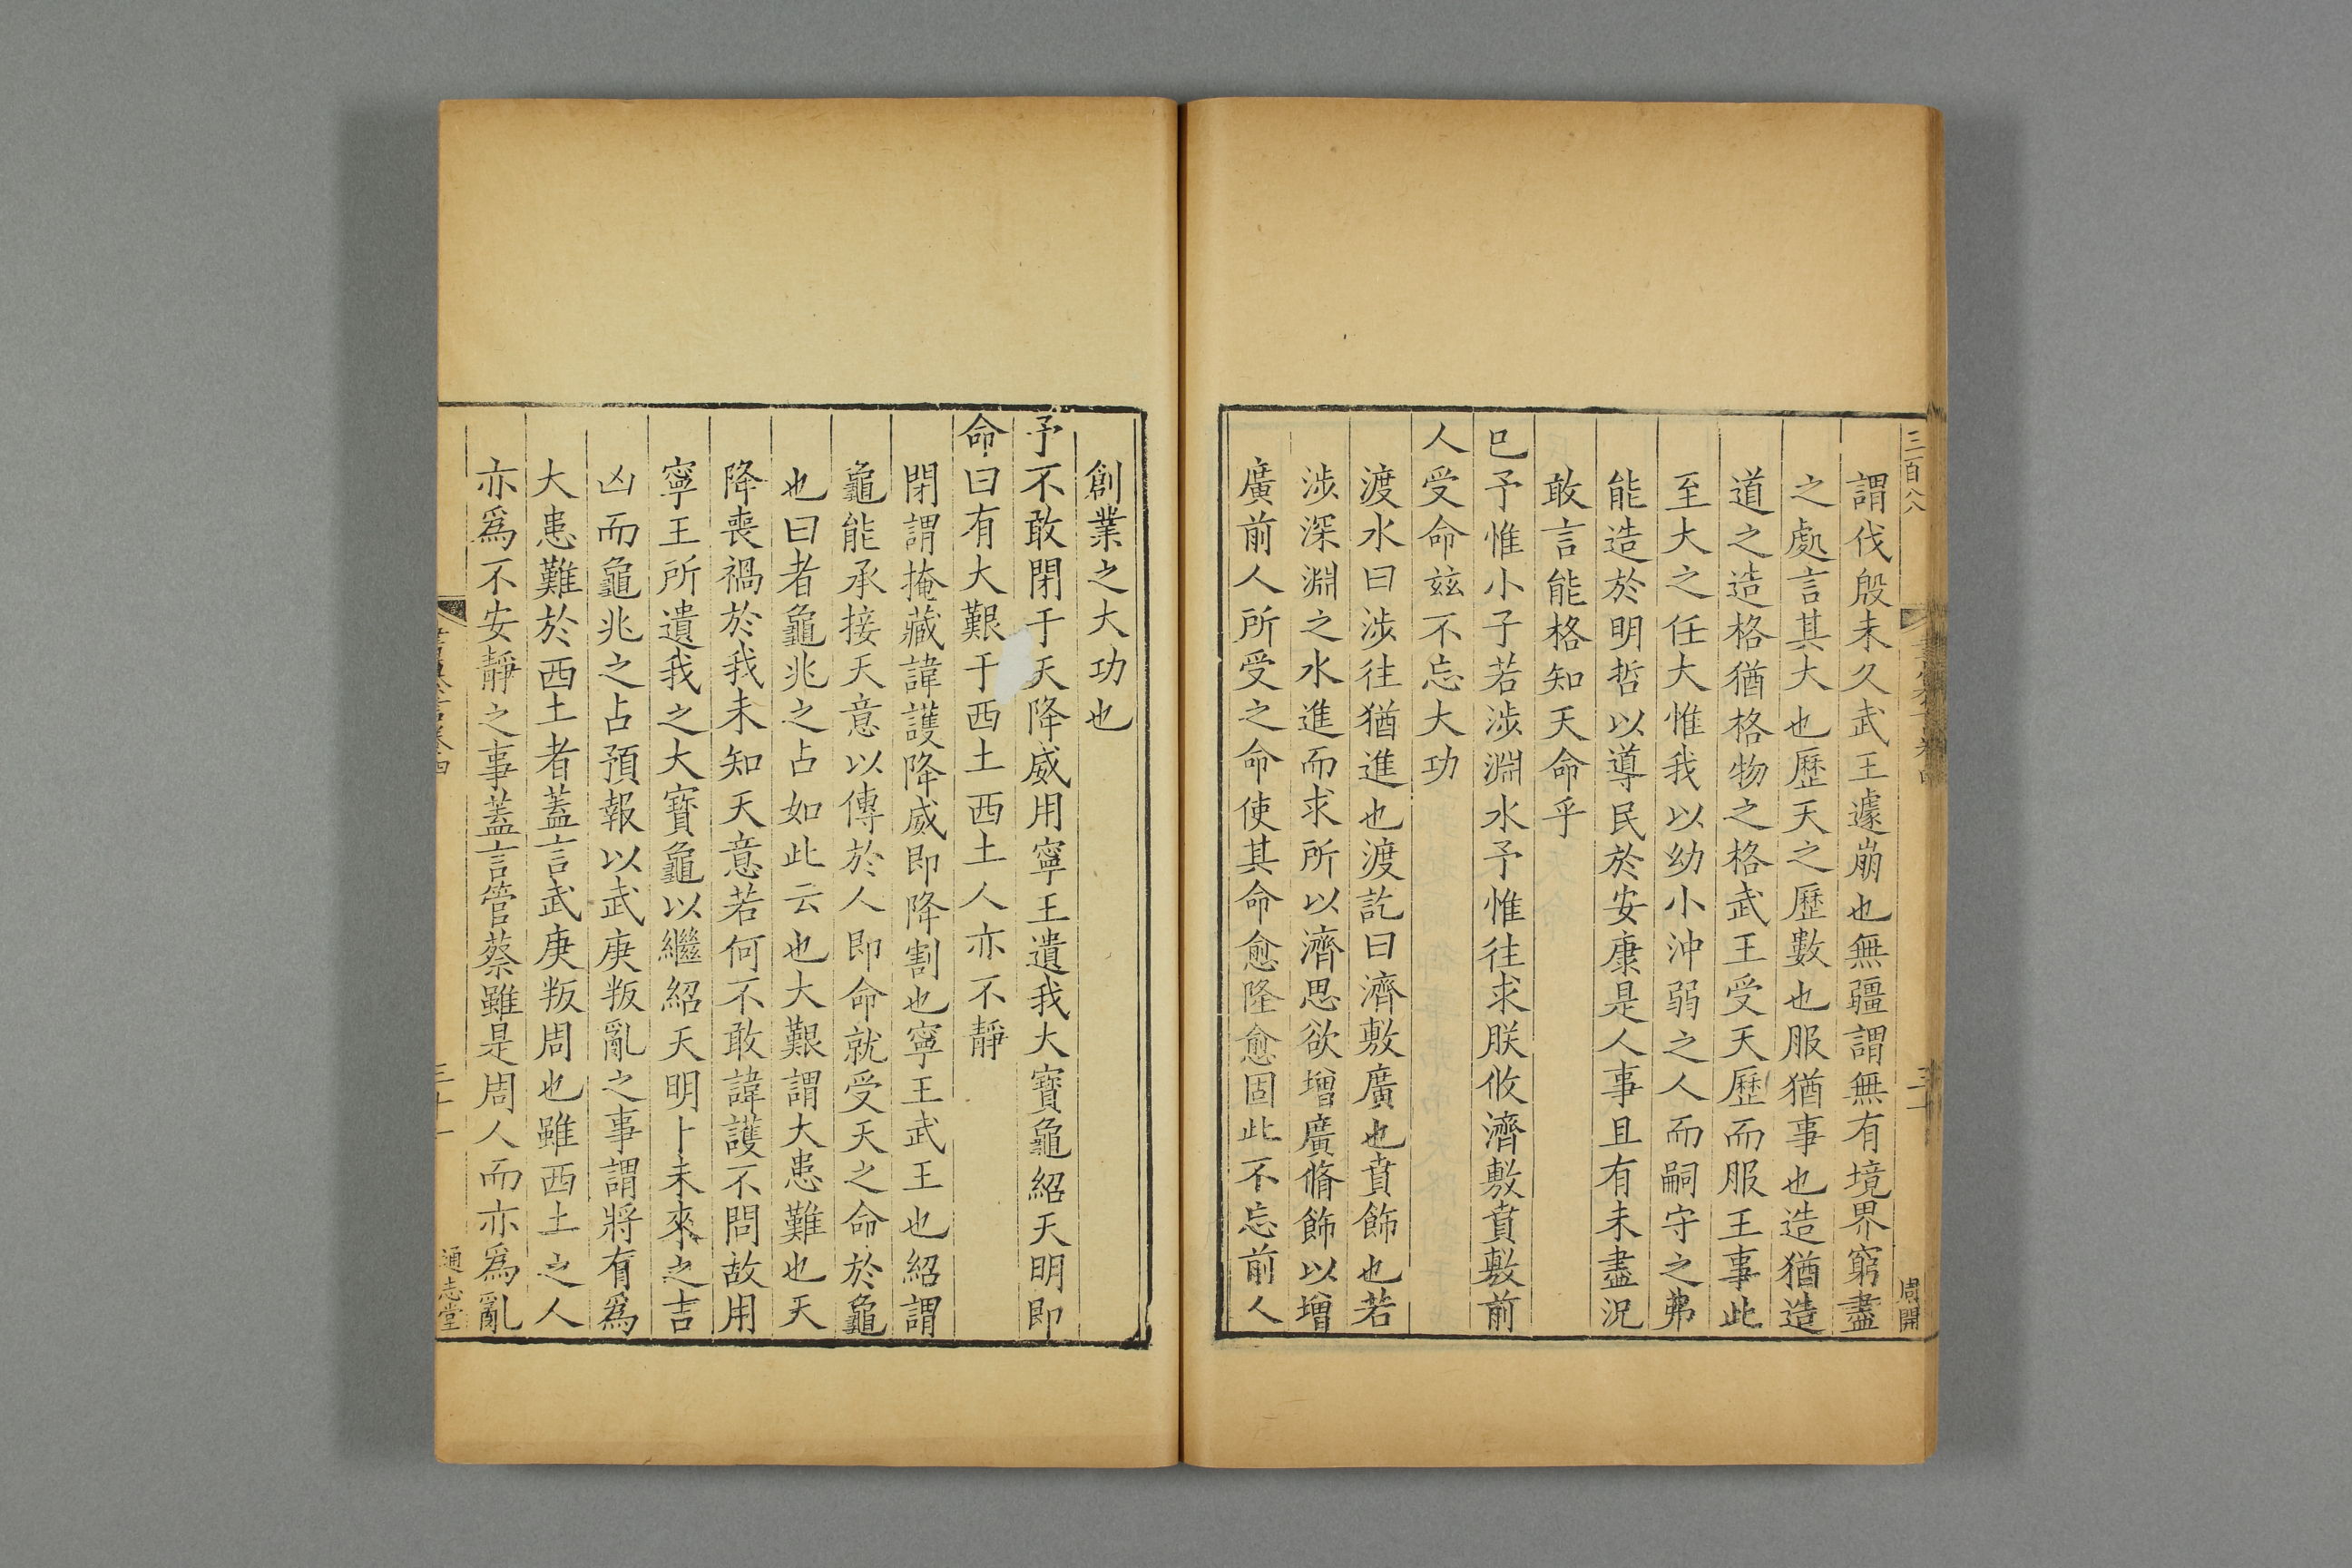 三百八
周開
謂伐殷未久武王遽崩也無疆謂無有境界窮盡
之處言其大也歷天之歷數也服猶事也造猶造
道之造格猶格物之格武王受天歷而服王事此
至大之任大惟我以幼小沖弱之人而嗣守之弗
能造於明哲以導民於安康是人事且有未盡況
敢言能格知天命乎
已予惟小子若涉淵水予惟往求朕攸濟敷賁敷前
人受命茲不忘大功
渡水曰涉往猶進也渡訖曰濟敷廣也賁飾也若
涉深淵之水進而求所以濟思欲增廣脩飾以增
廣前人所受之命使其命愈隆愈固此不忘前人
創業之大功也
予不敢閉于天降威用寧王遺我大寶龜紹天明即
命曰有大艱于西土西土人亦不靜
閉謂掩藏諱護降威即降割也寧王武王也紹謂
龜能承接天意以傳於人即命就受天之命於龜
也曰者龜兆之占如此云也大艱謂大患難也天
降喪禍於我未知天意若何不敢諱護不問故用
寧王所遺我之大寶龜以繼紹天明卜未來之吉
凶而龜兆之占預報以武庚叛亂之事謂將有為
大患難於西土者蓋言武庚叛周也雖西土之人
亦為不安靜之事蓋言管蔡雖是周人而亦為亂
三十一
通志堂